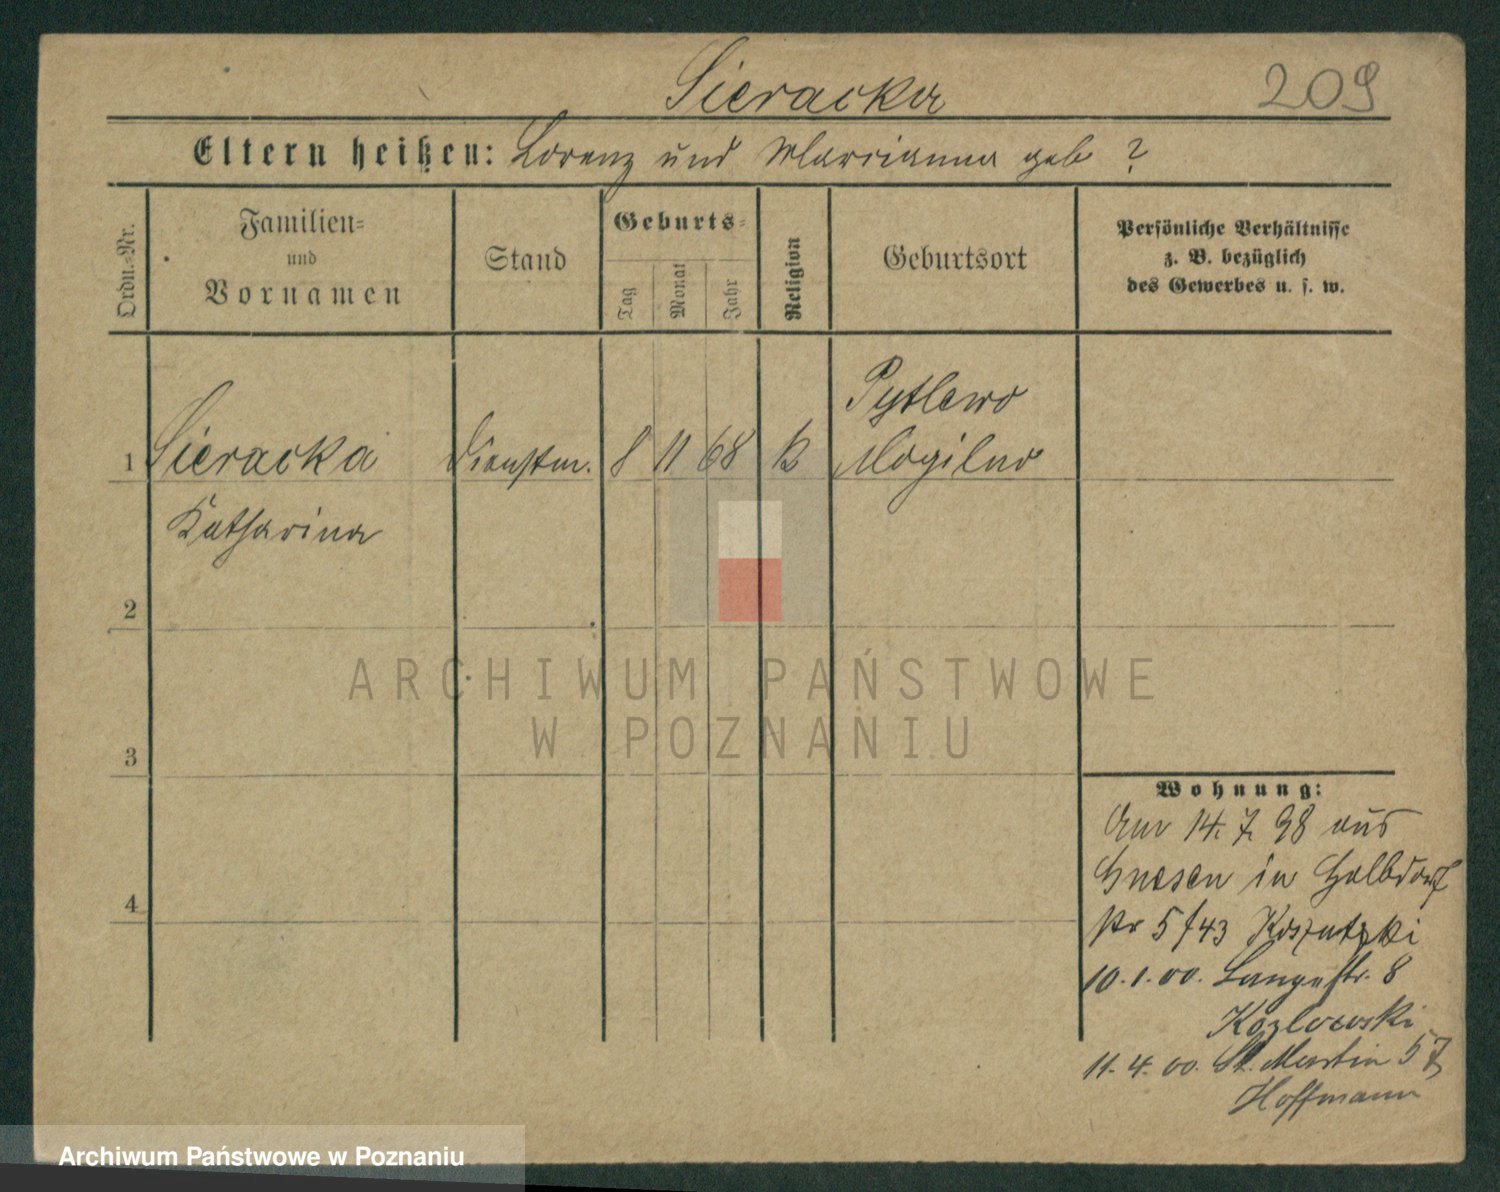 Sieracka 209
Eltern heißen: Lorenz und Marcianna geb ?
Ordn.-Nr.
Familien- und Vornamen
Stand
Geburts-
Tag
Monat
Jahr
Religion
Geburtsort
Persönliche Verhältnisse
z. B. bezüglich
des Gewerbes u. s. w.
Pytlewo
1 Sieracka Dienstm. 8 11 68 k Mogilno
Katharina
2
3
4
ARCHIWUM PAŃSTWOWE
W POZNANIU
Wohnung:
Am 14. 7. 98 aus
Gnesen in Halbdorf
str 5/43 Koszutzki
10. 1. 00. Langestr. 8
Kozlowski
11. 4. 00. St. Martin 57
Hoffmann
Archiwum Państwowe w Poznaniu